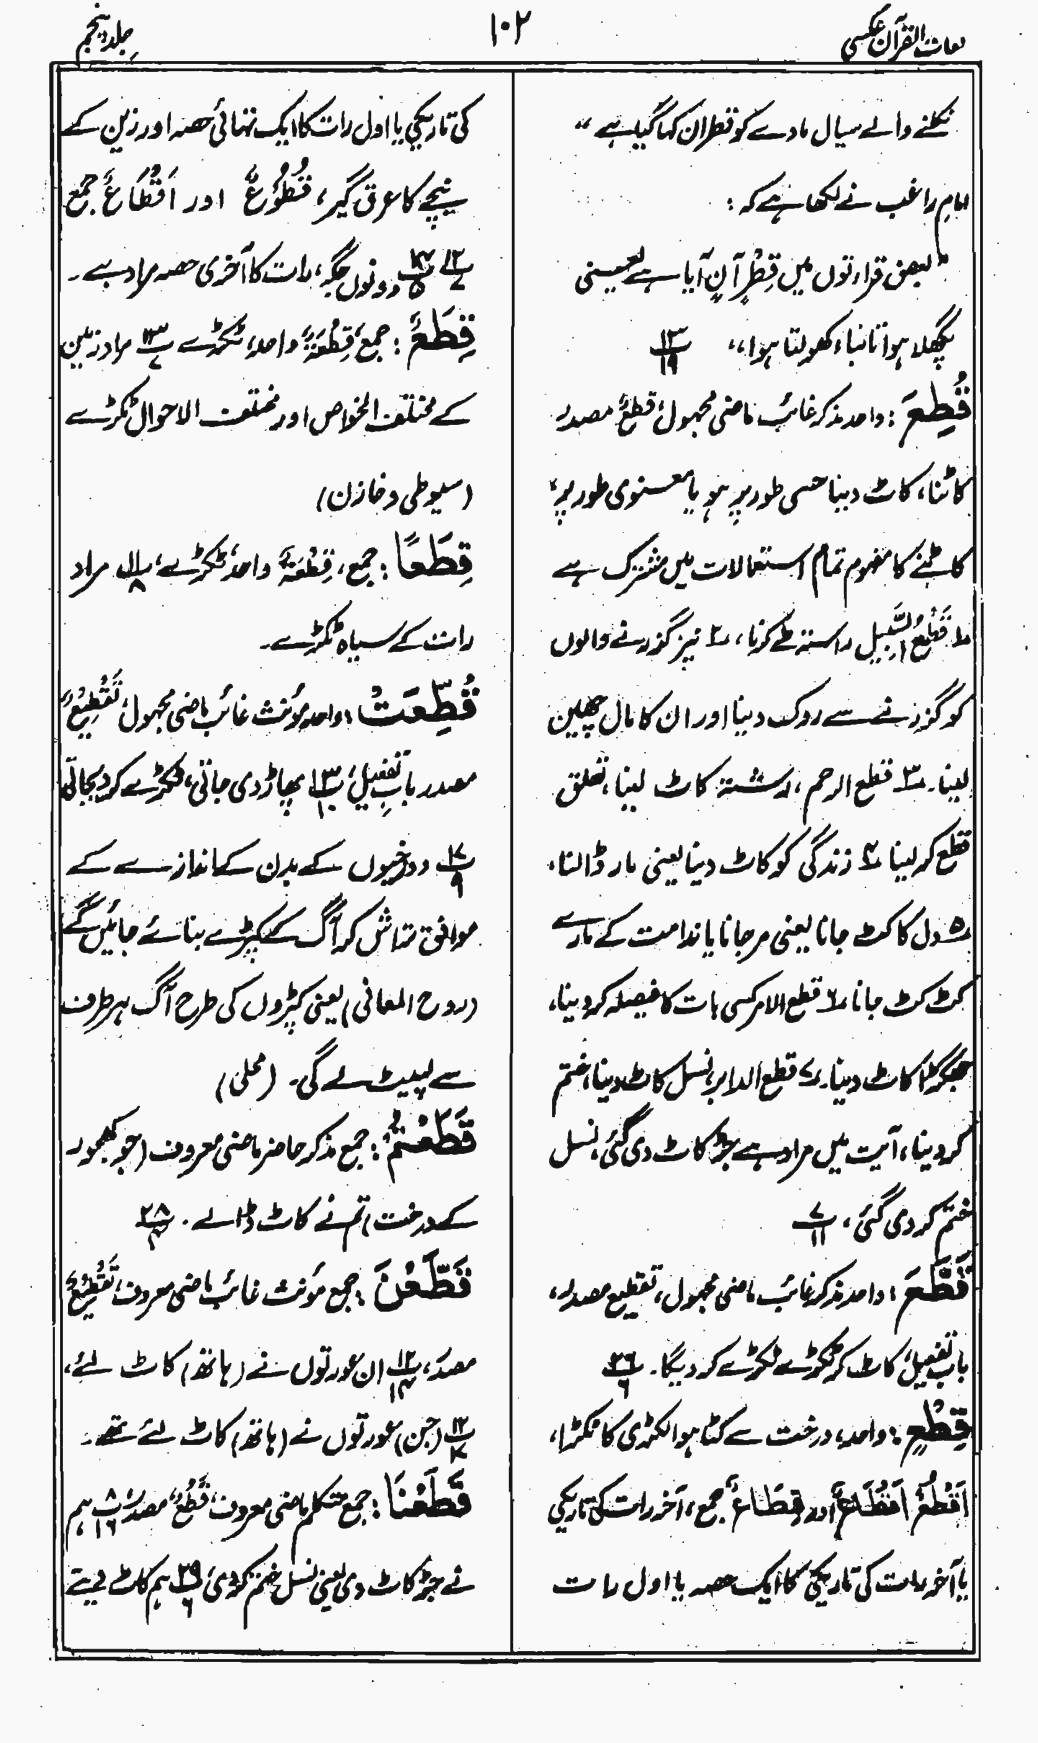 لغات القرآن عکسی
۱۰۲
جلد پنجم
نکلنے والے سیال مادے کو قطران کہا گیا ہے "
امام راغب نے لکھا ہے کہ :
" بعض قرارتوں میں قِطْرٍ آنٍ آیا ہے یعنی
پگھلا ہوا تانبا، کھولتا ہوا،، ۱۳/۱۹
قُطِعَ : واحد مذکر غائب ماضی مجہول، قطعٌ مصدر
کاٹنا، کاٹ دینا حسی طور پر ہو یا معنوی طور پر،
کاٹنے کا مفہوم تمام استعمالات میں مشترک ہے
۱؎ قَطْعُ السَّبِیل راستہ طے کرنا، ۲؎ نیز گزرنے والوں
کو گزرنے سے روک دینا اور ان کا مال چھین
لینا۔ ۳؎ قطع الرحم، رشتہ کاٹ لینا، تعلق
قطع کر لینا ۴؎ زندگی کو کاٹ دینا یعنی مار ڈالنا،
۵؎ دل کا کٹ جانا یعنی مر جانا یا ندامت کے مارے
کٹ کٹ جانا ۶؎ قطع الامر کسی بات کا فیصلہ کر دینا،
جھگڑا کاٹ دینا۔ ۷؎ قطع الدابر، نسل کاٹ دینا، ختم
کر دینا، آیت میں مراد ہے جڑ کاٹ دی گئی، نسل
ختم کر دی گئی، پ۷/۱۱
قَطَّعَ : واحد مذکر غائب ماضی مجہول، تقطیع مصدر،
باب تفعیل، کاٹ کر ٹکڑے ٹکڑے کر دیگا۔ پ۲۶/۶
قِطْعٍ : واحد، درخت سے کٹا ہوا لکڑی کا ٹکڑا،
اَقْطُعٌ اَقْطَاعٌ اور قِطَاعٌ جمع، آخر رات کی تاریکی
یا آخر رات کی تاریکی کا ایک حصہ یا اول رات
کی تاریکی یا اول رات کا ایک تہائی حصہ اور زین کے
نیچے کا عرق گیر، قُطُوْعٌ اور اَقْطَاعٌ جمع
پ۱۲/۷ پ۱۴/۵ دونوں جگہ، رات کا آخری حصہ مراد ہے۔
قِطَعٌ : جمع، قِطْعَۃٌ واحد، ٹکڑے پ۱۳/۷ مراد زمین
کے مختلف الخواص اور مختلف الاحوال ٹکڑے
(سیوطی و خازن)
قِطَعًا : جمع، قِطْعَۃٌ واحد، ٹکڑے، پ۱۱/۸ مراد
رات کے سیاہ ٹکڑے۔
قُطِّعَتْ : واحد مؤنث غائب ماضی مجہول، تَقْطِیْعٌ
مصدر باب تفعیل، پ۱۳/۱۰ پھاڑ دی جاتی، ٹکڑے کر دیجاتی
پ۱۷/۹ دوزخیوں کے بدن کے اندازے کے
موافق تراش کر آگ کے کپڑے بنائے جائیں گے
(روح المعانی) یعنی کپڑوں کی طرح آگ ہر طرف
سے لپیٹ لے گی۔ (محلی)
قَطَعْتُمْ : جمع مذکر حاضر ماضی معروف (جو کھجور
کے درخت) تم نے کاٹ ڈالے۔ پ۲۸/۴
قَطَّعْنَ : جمع مؤنث غائب ماضی معروف، تَقْطِیْعٌ
مصدر، پ۱۲/۱۴ ان عورتوں نے (ہاتھ) کاٹ لئے،
پ۱۲/۱۷ (جن) عورتوں نے (ہاتھ) کاٹ لئے تھے۔
قَطَعْنَا : جمع متکلم ماضی معروف، قَطْعٌ، مصدر، پ۸/۱۶ ہم
نے جڑ کاٹ دی یعنی نسل ختم کر دی، پ۲۹/۶ ہم کاٹ دیتے